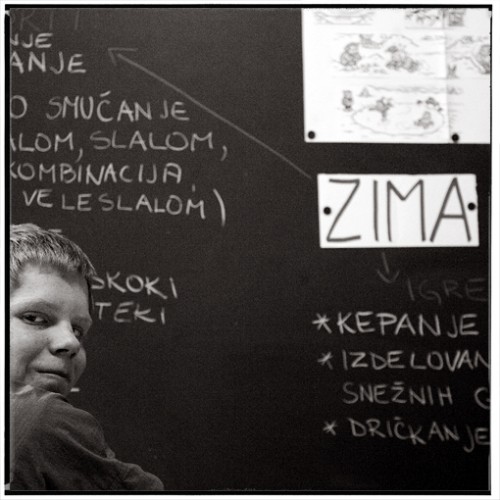 NJE
ANJE
O SMUČANJE
ALOM, SLALOM,
KOMBINACIJA,
VELESLALOM)
SKOKI
TEKI
ZIMA
IGRE
*KEPANJE
*IZDELOVAN
SNEŽNIH G
*DRIČKANJE